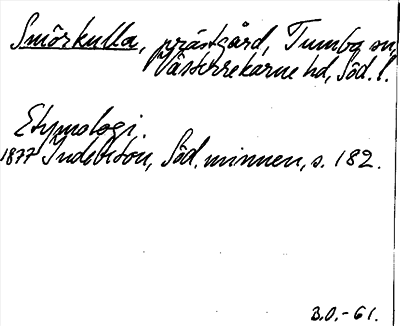 Smörkulla, prästgård, Tumbo sn,
Västerrekarne hd, Söd. l.
Etymologi
1877 Indebetou, Söd. minnen, s. 182.
B.O.-61.